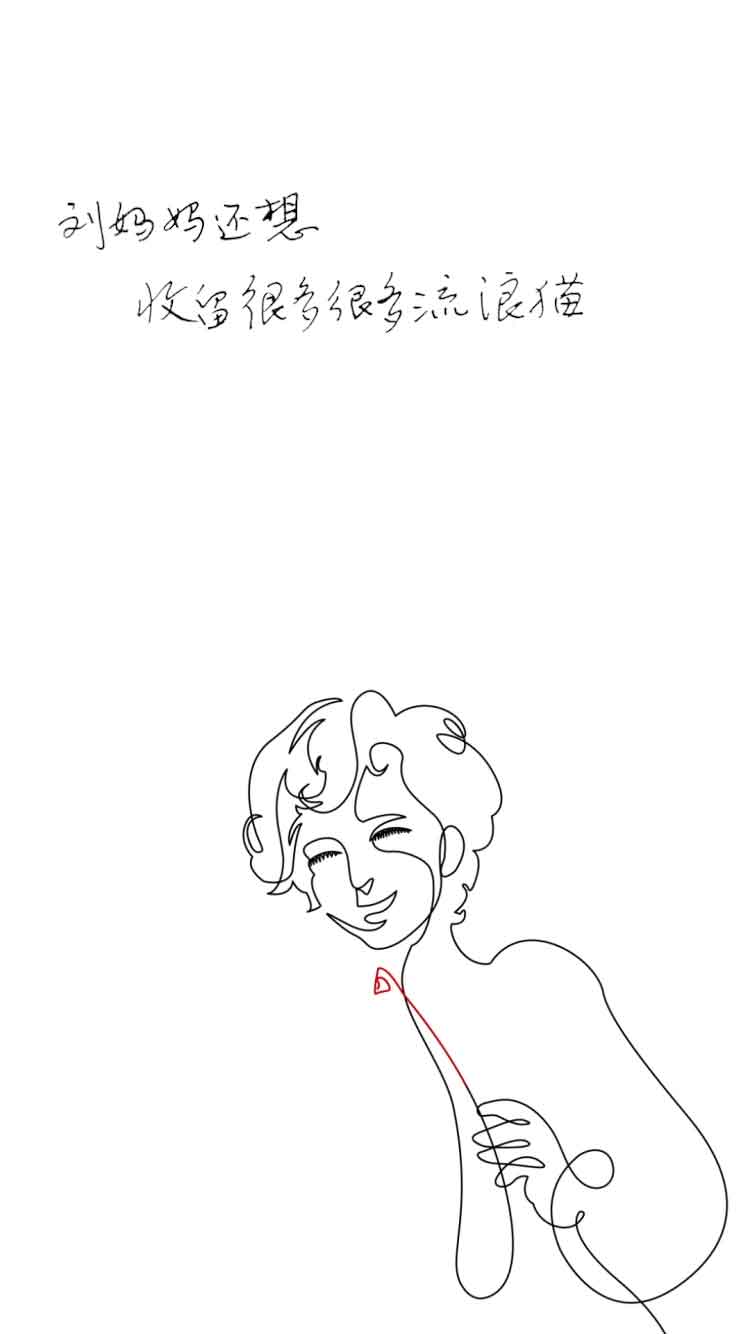 刘妈妈还想
收留很多很多流浪猫